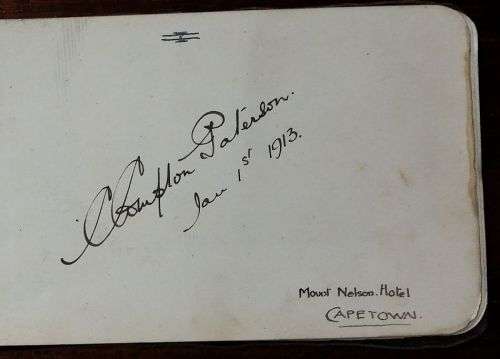 C Compton Paterson.
Jan 1st 1913.
Mount Nelson. Hotel
CAPETOWN.